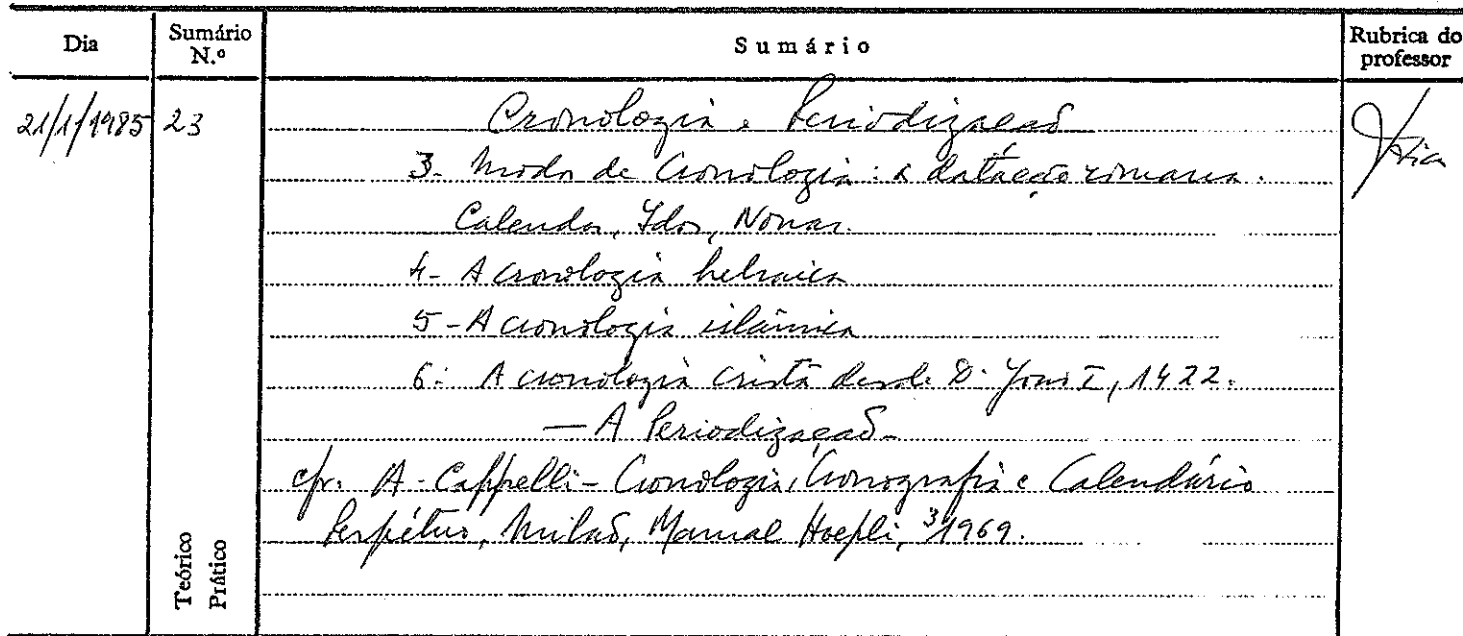 Dia Sumário N.º Sumário Rubrica do professor
21/1/1985 23 Cronologia e Periodização
3- Modos de Cronologia: a datação romana.
Calendas, Idos, Nonas.
4- A cronologia hebraica
5- A cronologia islâmica
6- A cronologia cristã desde D. João I, 1422.
— A Periodização -
cfr. A. Cappelli - Cronologia, Cronografia e Calendário
Perpétuo, Milão, Manual Hoepli, ³1969.
Teórico
Prático